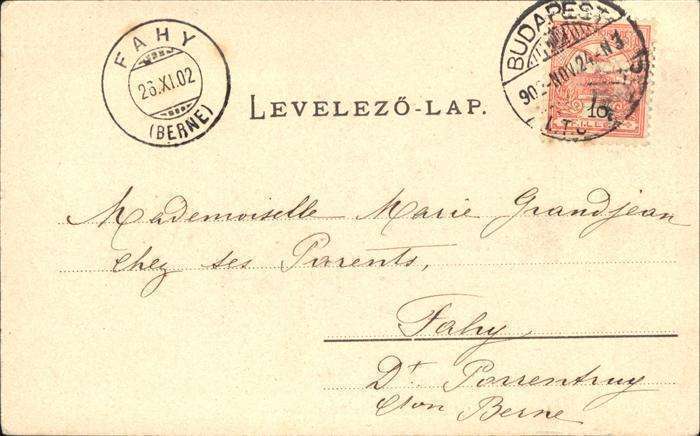 FAHY
26.XI.02
(BERNE)
BUDAPEST
902-NOV.24-N3
10
LEVELEZŐ-LAP.
Mademoiselle Marie Grandjean
chez ses Parents,
Fahy
Dt. Porrentruy
Cton Berne